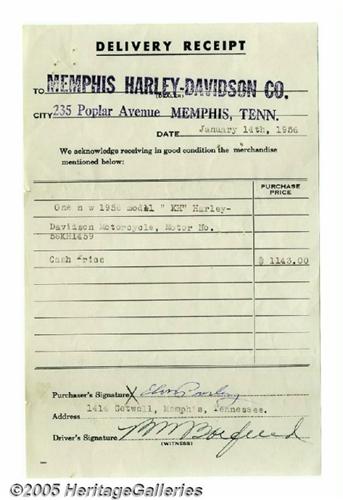 DELIVERY RECEIPT
TO MEMPHIS HARLEY-DAVIDSON CO.
(DEALER)
CITY 235 Poplar Avenue MEMPHIS, TENN.
DATE January 14th, 1956
We acknowledge receiving in good condition the merchandise
mentioned below:
PURCHASE
PRICE
One n w 1956 model " KH" Harley-
Davidson Motorcycle, Motor No.
56KH1459
Cash Price $ 1143.00
Purchaser's Signature X Elvis Presley
1414 Getwell, Memphis, Tennessee.
Address
Driver's Signature
(WITNESS)
©2005 HeritageGalleries